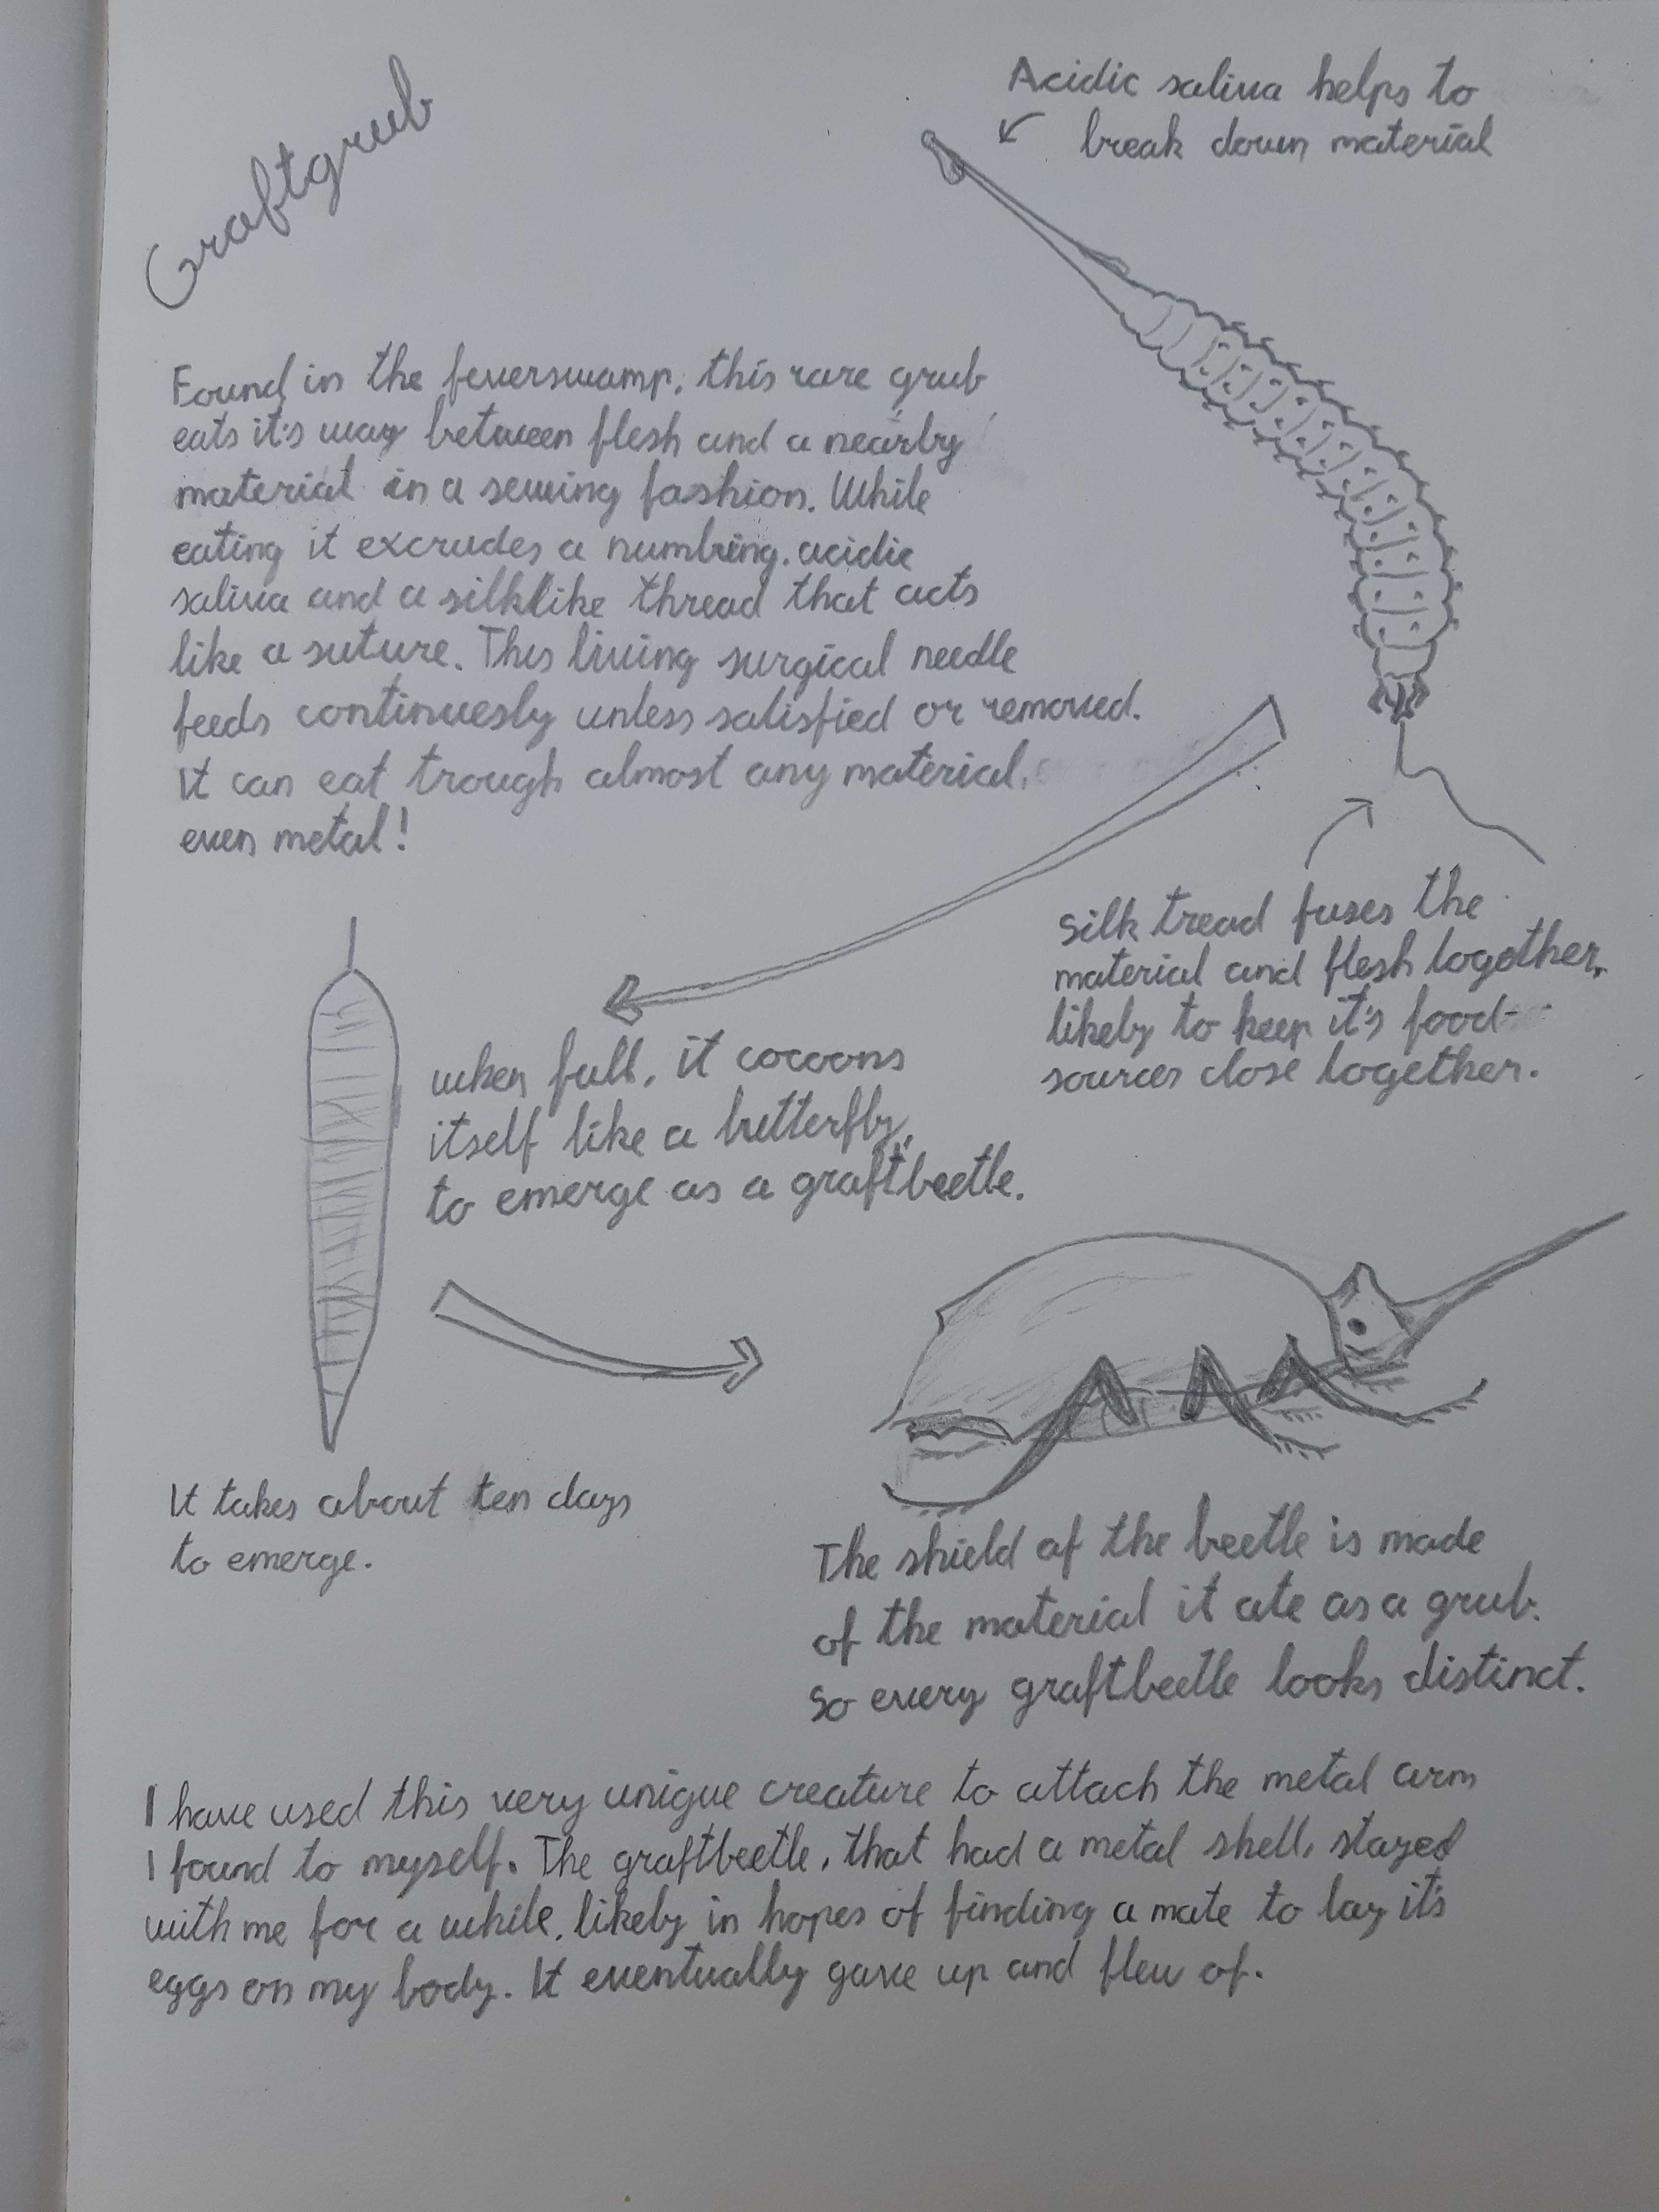 Graftgrub
Acidic saliva helps to
break down material
Found in the feverswamp, this rare grub
eats it's way between flesh and a nearby
material in a sewing fashion. While
eating it excrudes a numbing, acidic
saliva and a silklike thread that acts
like a suture. This living surgical needle
feeds continuesly unless satisfied or removed.
It can eat trough almost any material,
even metal!
Silk tread fuses the
material and flesh together,
likely to keep it's food-
sources close together.
when full, it cocoons
itself like a butterfly,
to emerge as a graftbeetle.
It takes about ten days
to emerge.
The shield of the beetle is made
of the material it ate as a grub.
So every graftbeetle looks distinct.
I have used this very unique creature to attach the metal arm
I found to myself. The graftbeetle, that had a metal shell, stayed
with me for a while, likely in hopes of finding a mate to lay it's
eggs on my body. It eventually gave up and flew of.